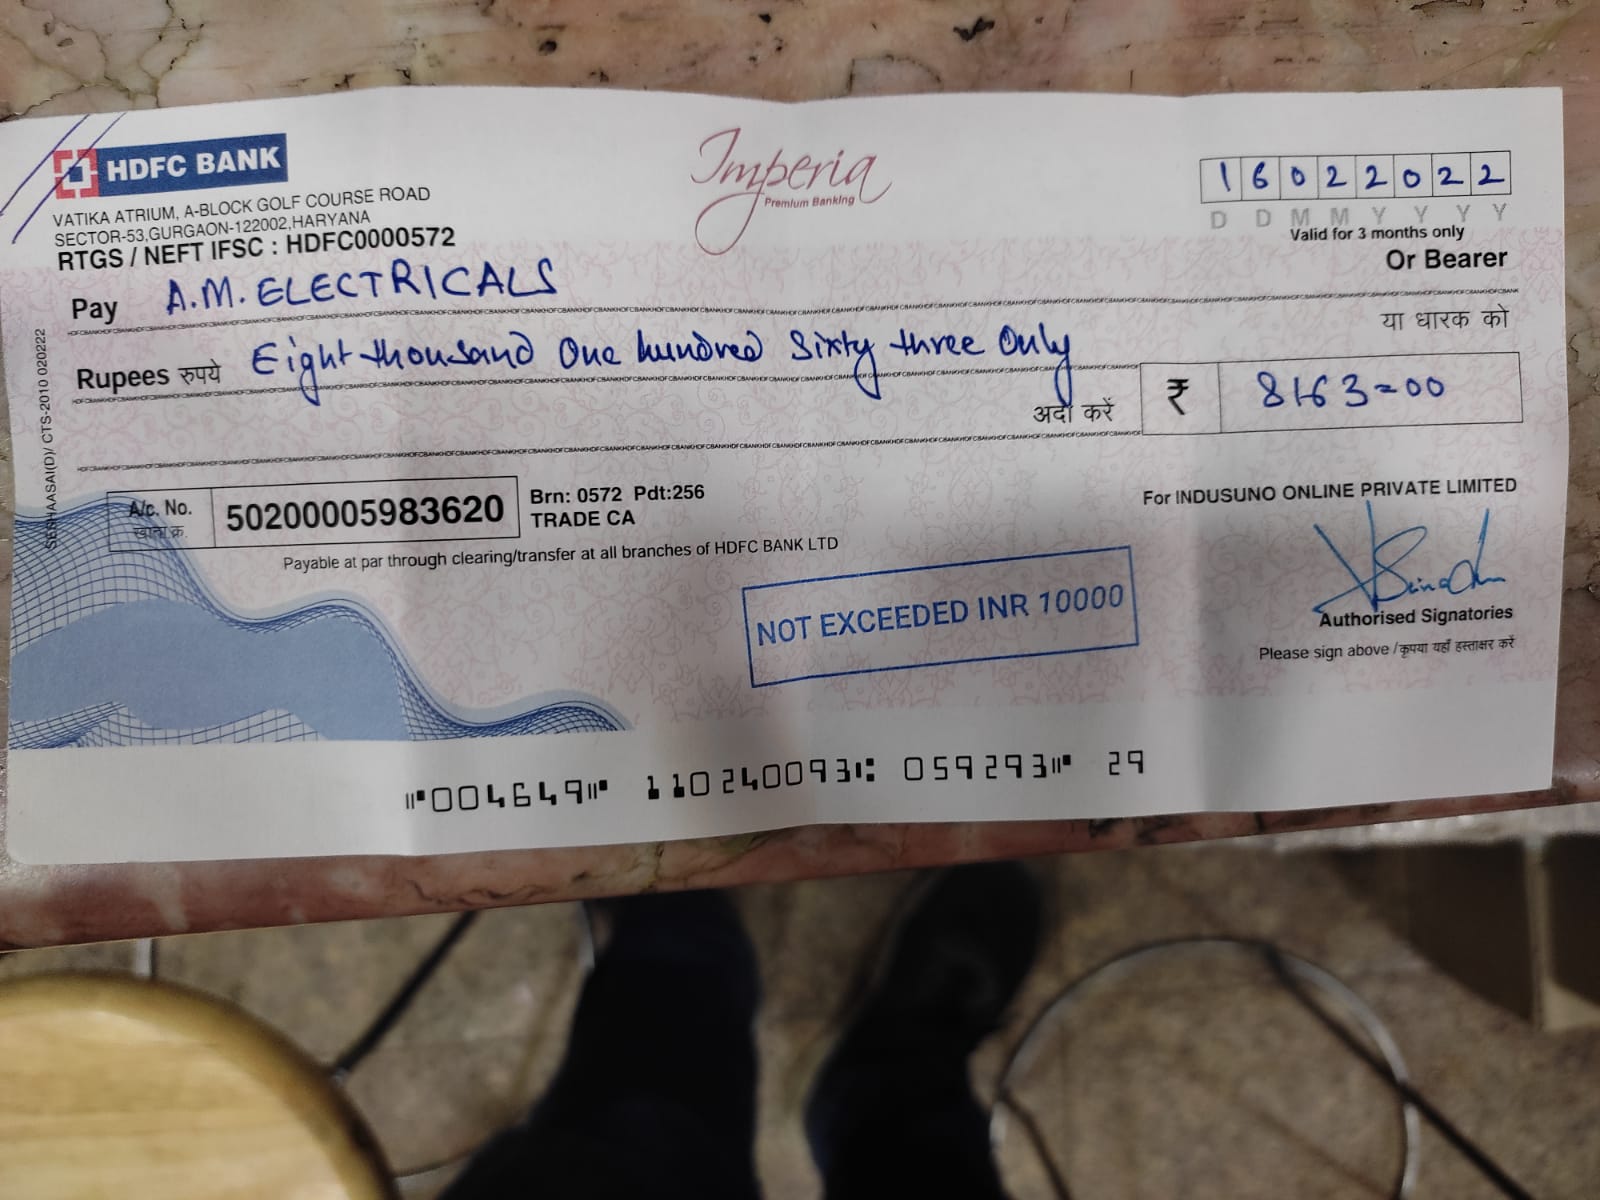 HDFC BANK
VATIKA ATRIUM, A-BLOCK GOLF COURSE ROAD
SECTOR-53,GURGAON-122002,HARYANA
RTGS / NEFT IFSC : HDFC0000572
Imperia
Premium Banking
16022022
D D M M Y Y Y Y
Valid for 3 months only
Pay A.M. ELECTRICALS
Or Bearer
या धारक को
Rupees रुपये Eight thousand One hundred Sixty three Only
अदा करें
₹ 8163=00
SESHAASAI(D)/ CTS-2010 020222
A/c. No.
खाता क्र.
50200005983620
Brn: 0572 Pdt:256
TRADE CA
Payable at par through clearing/transfer at all branches of HDFC BANK LTD
For INDUSUNO ONLINE PRIVATE LIMITED
NOT EXCEEDED INR 10000
Authorised Signatories
Please sign above /कृपया यहाँ हस्ताक्षर करें
⑈004649⑈ 110240093⑆ 059293⑈ 29